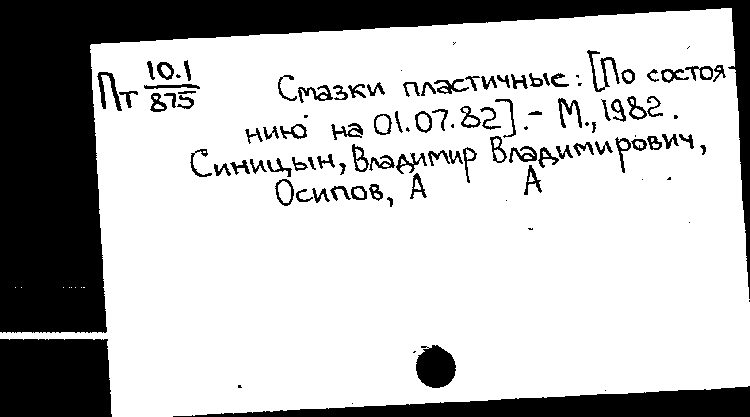 Пт 10.1/875 Смазки пластичные: [По состоя-
нию на 01.07.82]. - М., 1982.
Синицын, Владимир Владимирович,
Осипов, А А